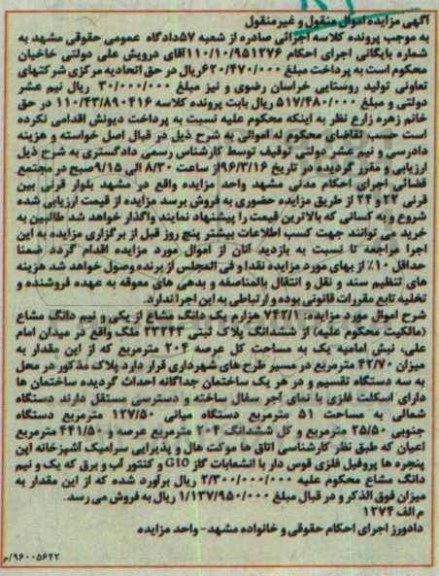 آگهی مزایده اموال منقول و غیرمنقول
به موجب پرونده کلاسه اجرائی صادره از شعبه ۵۷دادگاه عمومی حقوقی مشهد به
شماره بایگانی اجرای احکام ۱۱۰/۱۰/۹۵۱۲۷۶آقای درویش علی دولتی خاخیان
محکوم است به پرداخت مبلغ ۶۲۰/۴۷۰/۰۰۰ریال در حق اتحادیه مرکزی شرکتهای
تعاونی تولید روستایی خراسان رضوی و نیز مبلغ ۳۰/۰۰۰/۰۰۰ ریال نیم عشر
دولتی و مبلغ ۵۱۷/۴۸۰/۰۰۰ ریال بابت پرونده کلاسه ۱۱۰/۴۳/۸۹۰۴۱۶ در حق
خانم زهره زارع نظر به اینکه محکوم علیه نسبت به پرداخت دیونش اقدامی نکرده
است حسب تقاضای محکوم له اموالی به شرح ذیل در قبال اصل خواسته و هزینه
دادرسی و نیم عشر دولتی توقیف توسط کارشناس رسمی دادگستری به شرح ذیل
ارزیابی و مقرر گردیده در تاریخ ۹۶/۳/۱۶از ساعت ۸/۳۰ الی ۹/۱۵صبح در مجتمع
قضائی اجرای احکام مدنی مشهد واحد مزایده واقع در مشهد بلوار قرنی بین
قرنی ۲۲ و ۲۴ از طریق مزایده حضوری به فروش برسد مزایده از قیمت ارزیابی شده
شروع و به کسانی که بالاترین قیمت را پیشنهاد نمایند واگذار خواهد شد طالبین به
خرید می توانند جهت کسب اطلاعات بیشتر پنج روز قبل از برگزاری مزایده به این
اجرا مراجعه تا نسبت به بازدید آنان از اموال مورد مزایده اقدام گردد ضمنا
حداقل ۱۰٪ از بهای مورد مزایده نقدا و فی المجلس از برنده وصول خواهد شد هزینه
های تنظیم سند و نقل و انتقال بالمناصفه و بدهی های معوقه به عهده فروشنده و
تخلیه تابع مقررات قانونی بوده و ارتباطی به این اجرا ندارد.
شرح اموال مورد مزایده: ۷۴۲/۱ هزارم یک دانگ مشاع از یکی و نیم دانگ مشاع
(مالکیت محکوم علیه) از ششدانگ پلاک ثبتی ۳۳۲۴۳ ملک واقع در میدان امام
علی، نبش امامیه یک به مساحت کل عرصه ۲۰۴ مترمربع که از این مقدار به
میزان ۴۲/۷۰ مترمربع در مسیر طرح های شهرداری قرار دارد پلاک مذکور در محل
به سه دستگاه تقسیم و در هر یک ساختمان جداگانه احداث گردیده ساختمان ها
دارای اسکلت فلزی با نمای آجر سفال ساخته و دسترسی مستقل دارند دستگاه
شمالی به مساحت ۵۱ مترمربع دستگاه میانی ۱۲۷/۵۰ مترمربع دستگاه
جنوبی ۲۵/۵۰ مترمربع و کل ششدانگ ۲۰۴ مترمربع عرصه و ۴۴۱/۵۰ مترمربع
اعیان که طبق نظر کارشناسی اتاق ها موکت هال و پذیرایی سرامیک آشپزخانه اپن
پنجره ها پروفیل فلزی قوس دار با انشعابات گاز G10 و کنتور آب و برق که یک و نیم
دانگ مشاع محکوم علیه ۲/۳۰۰/۰۰۰/۰۰۰ ریال برآورد شده که از این مقدار به
میزان فوق الذکر و در قبال مبلغ ۱/۱۳۷/۹۵۰/۰۰۰ ریال به فروش می رسد.
م الف ۱۲۷۴
دادورز اجرای احکام حقوقی و خانواده مشهد-واحد مزایده
۹۶۰۰۵۶۲۲/م